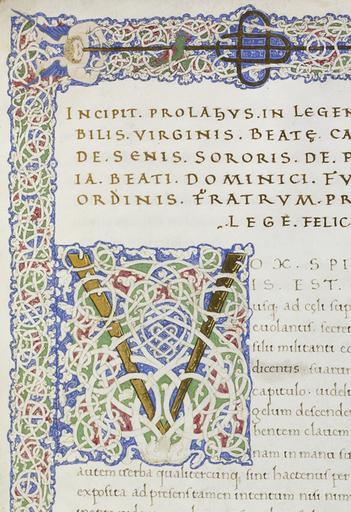 INCIPIT. PROLAGVS. IN LEGEN
BILIS. VIRGINIS. BEATĘ. CA
DE. SENIS. SORORIS. DE. P
IA. BEATI. DOMINICI. FV
ORDINIS. FRATRVM. PR
.LEGE. FELIC
V
OX. SPI
IS. EST.
usq; ad cęli sup
euolantis. secret
silii militanti ec
dicentis suarum
capitulo. uidelic
gelum descende
bentem clauem
nam in manu su
autem uerba qualitercunq; sint hactenus per
exposita ad presens tamen intentum nisi num